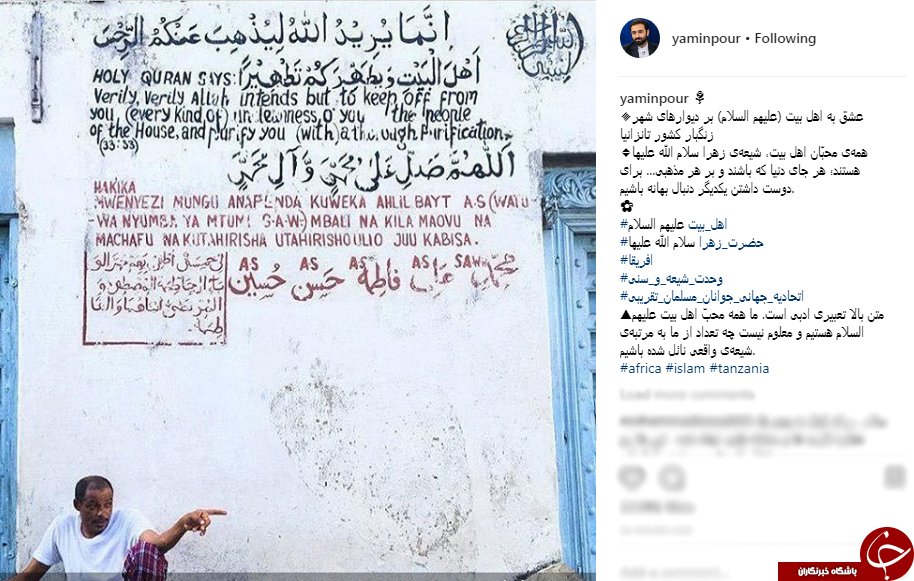 إنَّمَا يُرِيدُ اللهُ لِيُذْهِبَ عَنْكُمُ الرِّجْسَ
أَهْلَ الْبَيْتِ وَيُطَهِّرَكُمْ تَطْهِيْرًا
HOLY QURAN SAYS:
Verily, Verily Allah intends but to keep off from
you (every kind of) uncleanness o' you the People
of the House, and purify you (with) a thorough Purification.
(33:33)
اَللّٰهُمَّ صَلِّ عَلىٰ مُحَمَّدٍ وَّآلِ مُحَمَّدٍ
HAKIKA
MWENYEZI MUNGU ANAPENDA KUWEKA AHLIL BAYT A.S (WATU
WA NYUMBA YA MTUMI S-A-W) MBALI NA KILA MAOVU NA
MACHAFU NA KUTAHIRISHA UTAHIRISHO ULIO JUU KABISA.
AS AS AS AS SAW
مُحَمَّد عَلِي فَاطِمَة حَسَن حُسَين
لي خمسة أطفي بهم حر الو
باء الحاطمة المصطفى و
المرتضى و ابناهما و الفا
طمة
yaminpour • Following
yaminpour
عشق به اهل بیت (علیهم السلام) بر دیوارهای شهر
زنگبار کشور تانزانیا
همه‌ی محبّان اهل بیت، شیعه‌ی زهرا سلام الله علیها
هستند؛ هر جای دنیا که باشند و بر هر مذهبی... برای
دوست داشتن یکدیگر دنبال بهانه باشیم.
#اهل_بیت علیهم السلام
#حضرت_زهرا سلام الله علیها
#افریقا
#وحدت_شیعه_و_سنی
#اتحادیه_جهانی_جوانان_مسلمان_تقریبی
▲متن بالا تعبیری ادبی است. ما همه محبّ اهل بیت علیهم
السلام هستیم و معلوم نیست چه تعداد از ما به مرتبه‌ی
شیعه‌ی واقعی نائل شده باشیم.
#africa #islam #tanzania
Load more comments
باشگاه خبرنگاران